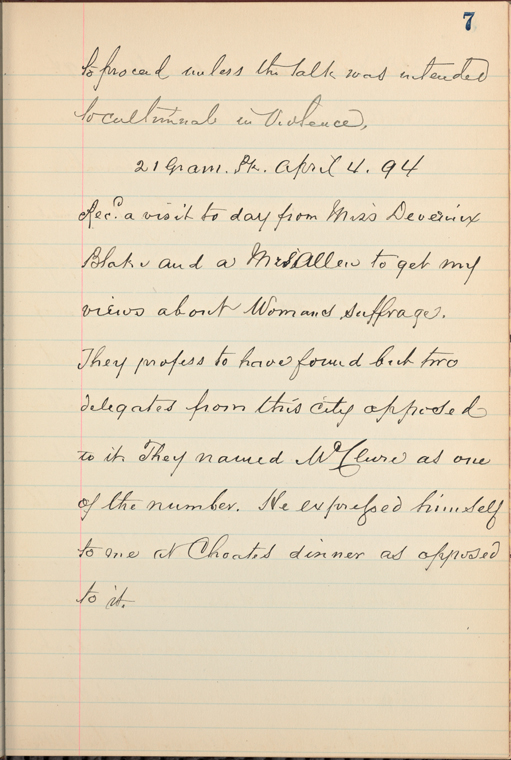 7
to proceed unless the talk was intended
to culminate in Violence,
21 Gram. Pk. April 4. 94
Recd. a visit to day from Miss Devereux
Blake and a Mrs Allen to get my
views about Womans suffrage.
They profess to have found but two
delegates from this city opposed
to it. They named McClure as one
of the number. He expressed himself
to me at Choates dinner as opposed
to it.